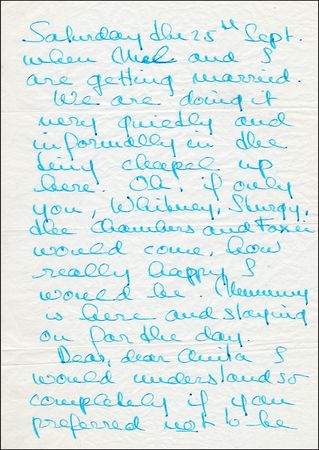 Saturday the 25th Sept.
when Mel and I
are getting married.
We are doing it
very quietly and
informally in the
tiny chapel up
here. Oh, if only
you, Whitney, Sturgy,
the Chambers and Foxie
would come, how
really happy I
would be. Mummy
is here and staying
on for the day.
Dear, dear Anita I
would understand so
completely if you
preferred not to be